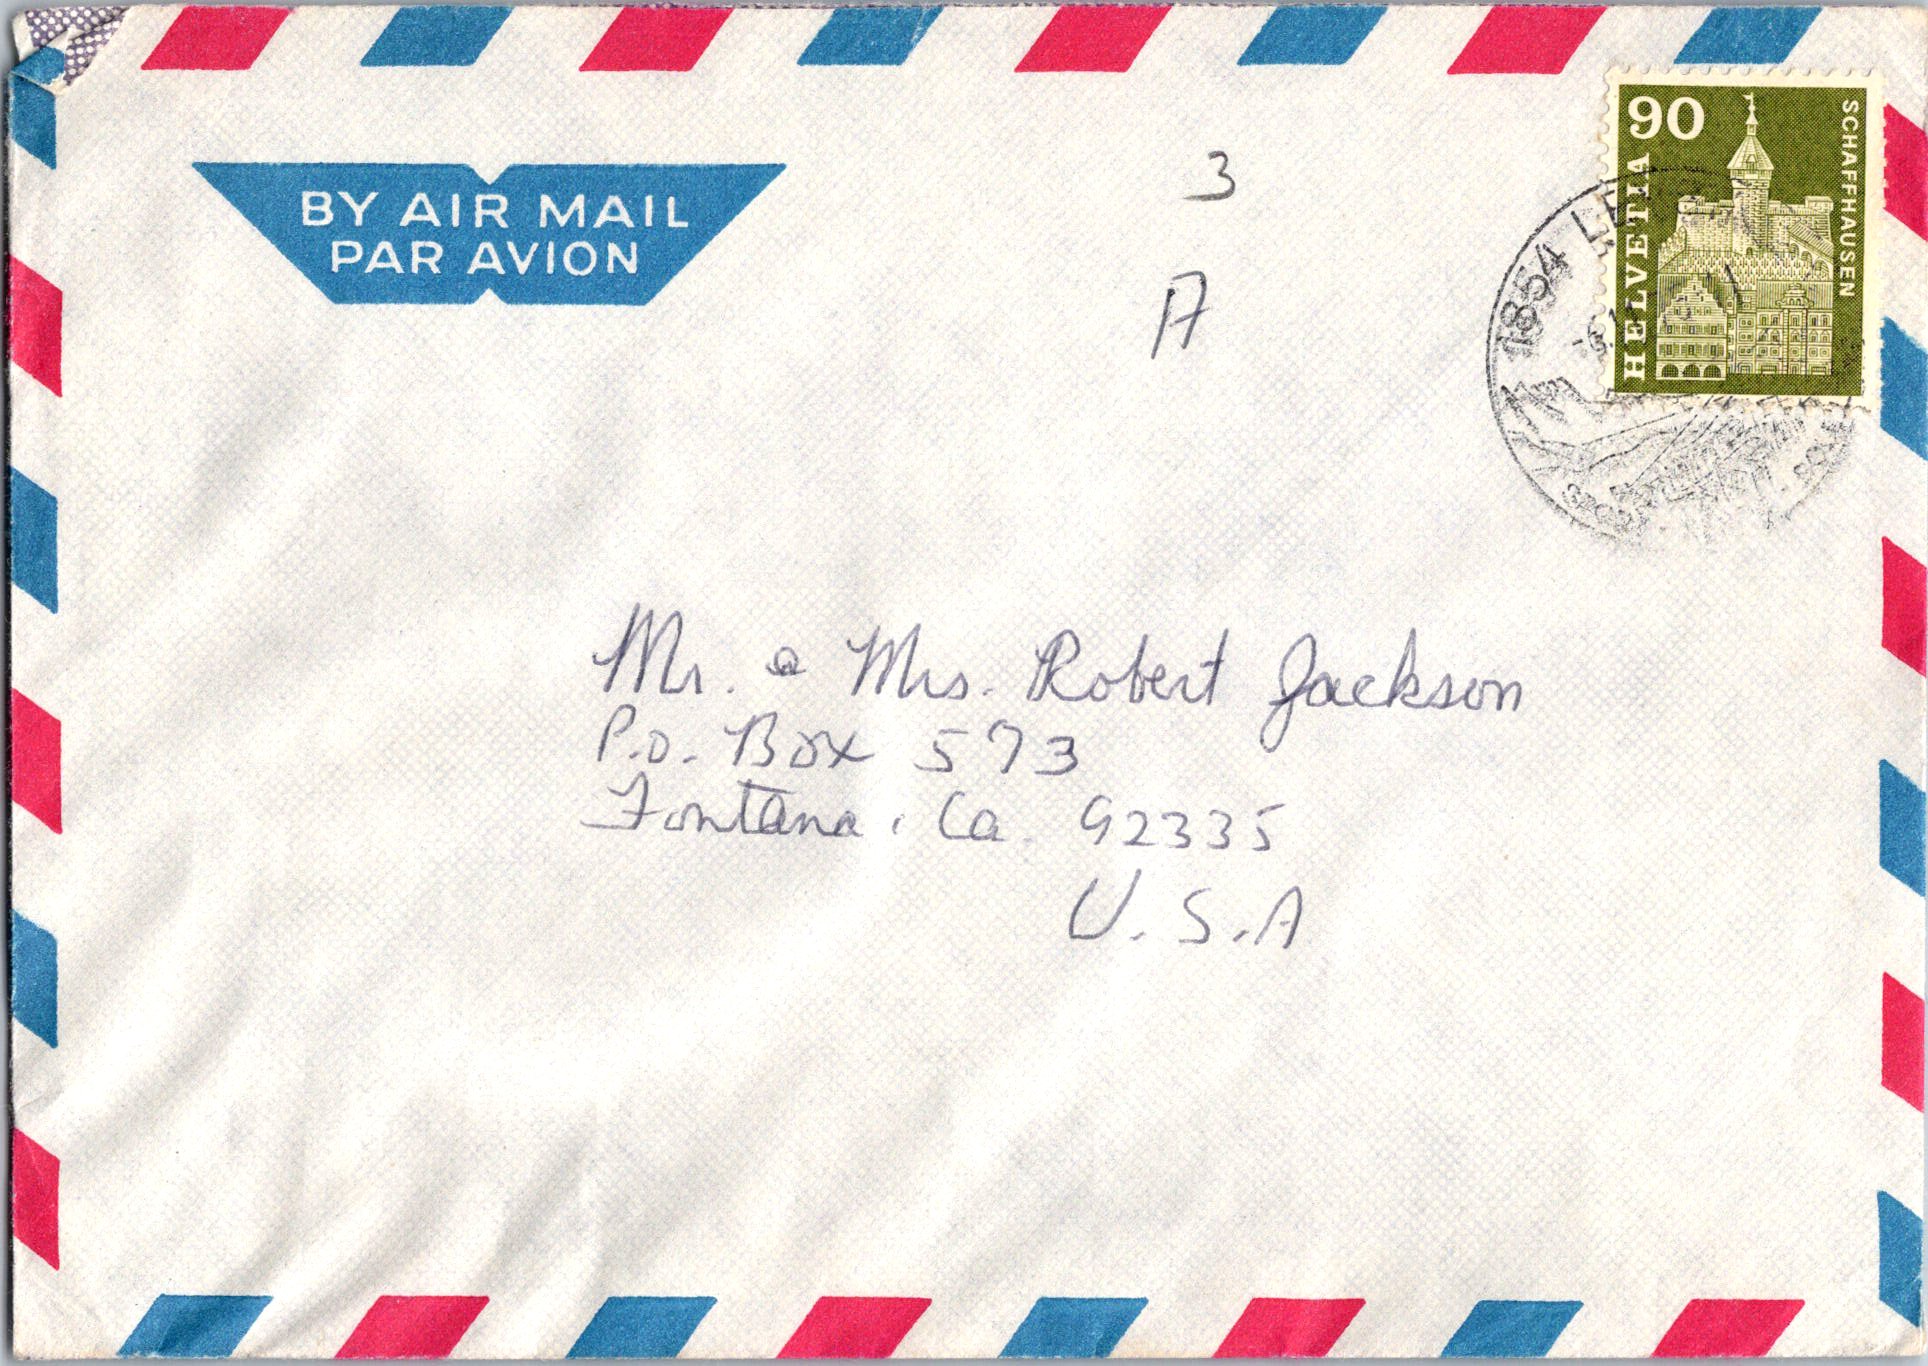 BY AIR MAIL
PAR AVION
3
A
90
HELVETIA
SCHAFFHAUSEN
1854
Mr. & Mrs. Robert Jackson
P.O. Box 573
Fontana, Ca. 92335
U.S.A